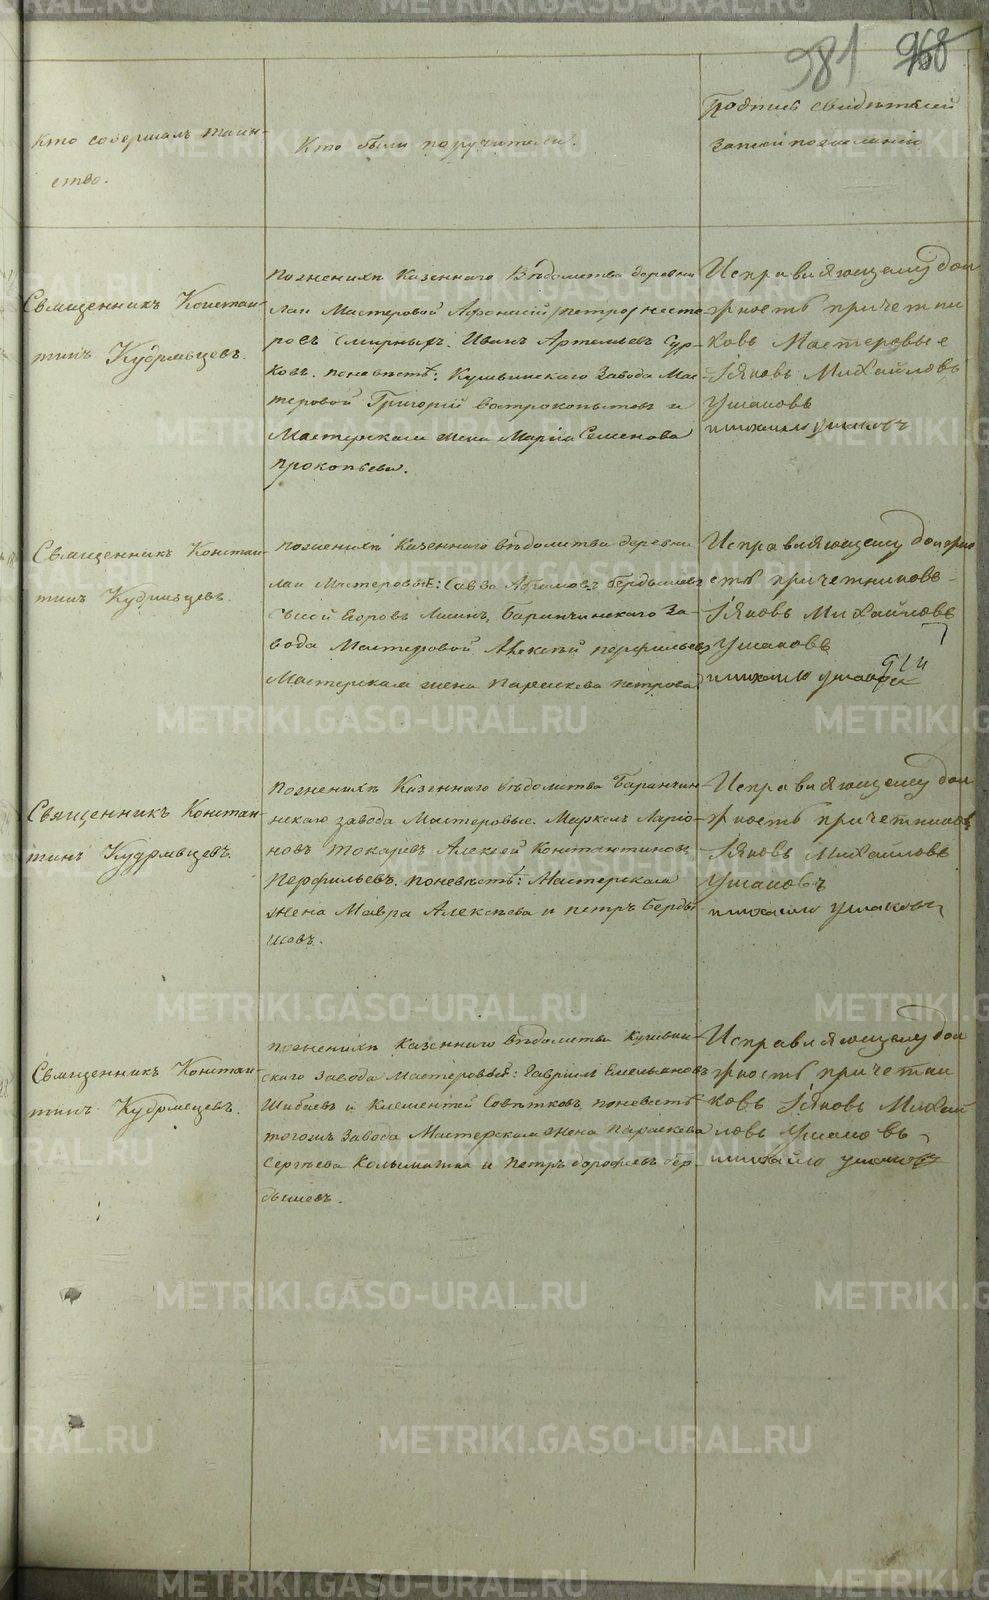 981 968
Кто совершалъ таин-
ство.
Кто были поручители.
Подпись свидѣтелей
записи по желанію
Священникъ Констан-
тинъ Кудрявцевъ.
По женихѣ Казеннаго Вѣдомства деревни
Лаи Мастеровой Афонасій /петро/ несте-
ровъ Смирныхъ. Иванъ Артемьевъ Сур-
ковъ. по невѣстѣ: Кушвинскаго Завода Мас-
теровой Григорій Вострокопытовъ и
Мастерская жена Марія Семенова
Прокопьева.
Исправляющему дол
жность причетни
ковъ Мастеровые
Іяковъ Михайловъ
Ушаковъ
михаило ушаковъ
Священникъ Констан-
тинъ Кудрявцевъ.
По женихѣ Казеннаго вѣдомства деревни
лаи Мастеровые: Савва Абрамовъ Бердышевъ
Сысой Егоровъ Баранчинскаго За-
вода Мастеровой Алексѣй перфильевъ
Мастерская жена Параскева петрова
Исправляющему должно
сть причетниковъ
Іяковъ Михайловъ
Ушаковъ
михаило
Священникъ Констан-
тинъ Кудрявцевъ.
По женихѣ Казеннаго вѣдомства Баранчин
искаго завода Мастеровые. Маркелъ Ларіо-
новъ Токаревъ Алексей Константиновъ
Перфильевъ. по невѣстѣ: Мастерская
жена Мавра Алексѣева и петръ берды
шовъ.
Исправляющему дол
жность причетников
Іяковъ Михайловъ
Ушаковъ
михаило ушаковъ
Священникъ Констан-
тинъ Кудрявцевъ.
По женихѣ Казеннаго вѣдомства Кушвин-
скаго Завода Мастеровые: Гавріилъ Емельяновъ
Шибаевъ и Клементей Совѣтковъ, по невѣстѣ
тогожъ Завода Мастерская жена Параскева
Сергѣева и петръ дорофѣевъ бер-
дышевъ.
Исправляющему дол
жность причетни
ковъ Іяковъ Михай
ловъ Ушаковъ
михайло ушаковъ
METRIKI.GASO-URAL.RU